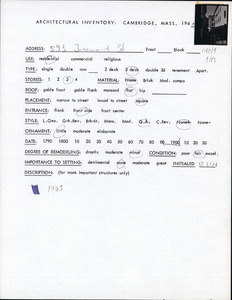 ARCHITECTURAL INVENTORY: CAMBRIDGE, MASS, 196
ADDRESS: Tremont St Tract Block
USE: residential commercial religious
TYPE: single double row 2 deck 3 deck double 3d tenement Apart.
STORIES: 1 2 3 4 MATERIAL: Frame Brick Mod. compo
ROOF: gable front gable flank mansard flat hip
PLACEMENT: narrow to street broad to street square
ENTRANCE: flank front side front center
STYLE: L.Geo. Grk.Rev. Brk-It. Mans. Mod. Q.A. C.Rev. None
ORNAMENT: little moderate elaborate
DATE: 1790 1800 10 20 30 40 50 60 70 80 90 1900 10 20 30
DEGREE OF REMODELING: drastic moderate minor CONDITION: poor fair excel.
IMPORTANCE TO SETTING: detrimental none moderate great INITIALED
DESCRIPTION: (for more important structures only)
1903